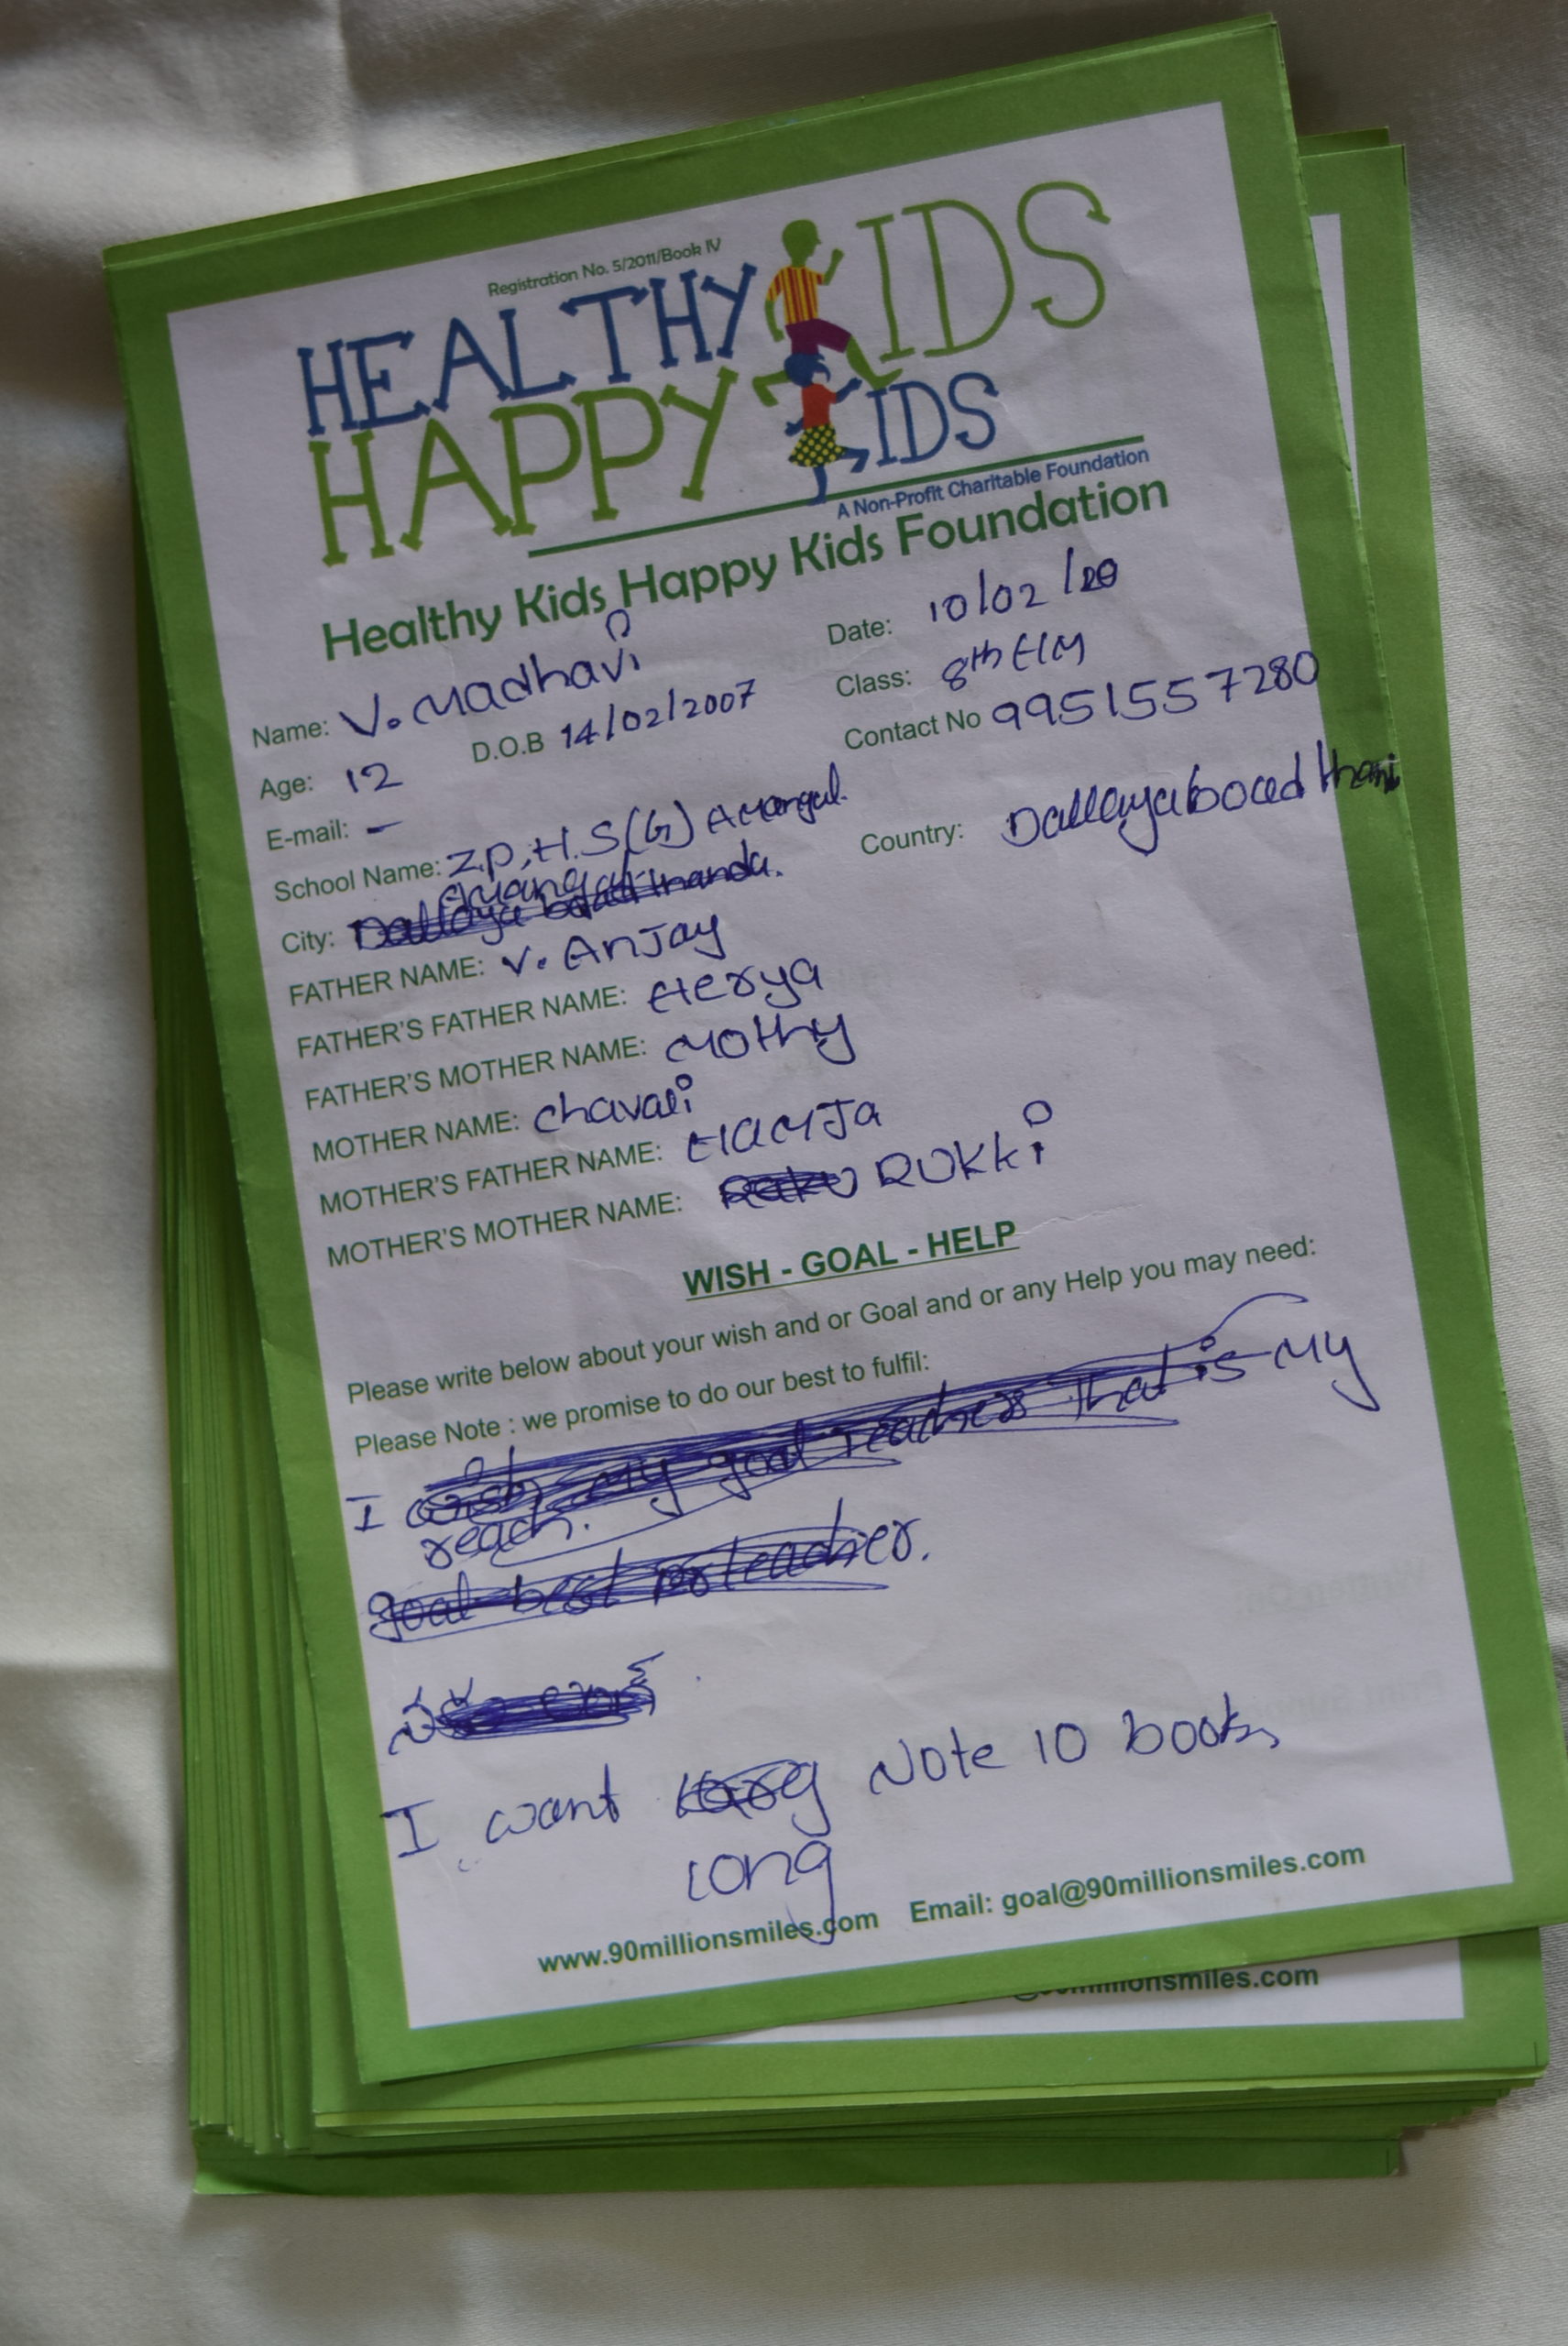 Registration No. 5/2011/Book IV
HEALTHY KIDS
HAPPY KIDS
A Non-Profit Charitable Foundation
Healthy Kids Happy Kids Foundation
Name: V. Madhavi Date: 10/02/20
Age: 12 D.O.B 14/02/2007 Class: 8th E/M
E-mail: – Contact No 9951557280
School Name: Z.P.H.S(G) Amangal.
Amangal
City: Country:
FATHER NAME: V. Anjay
FATHER'S FATHER NAME: Herya
FATHER'S MOTHER NAME: Mothy
MOTHER NAME: Chavali
MOTHER'S FATHER NAME: HAMJa
MOTHER'S MOTHER NAME: RUKKi
WISH - GOAL - HELP
Please write below about your wish and or Goal and or any Help you may need:
Please Note : we promise to do our best to fulfil:
I wish my goal Teachers That is My
reach.
goal best teacher.
I want Note 10 books
long
www.90millionsmiles.com Email: goal@90millionsmiles.com
millionsmiles.com